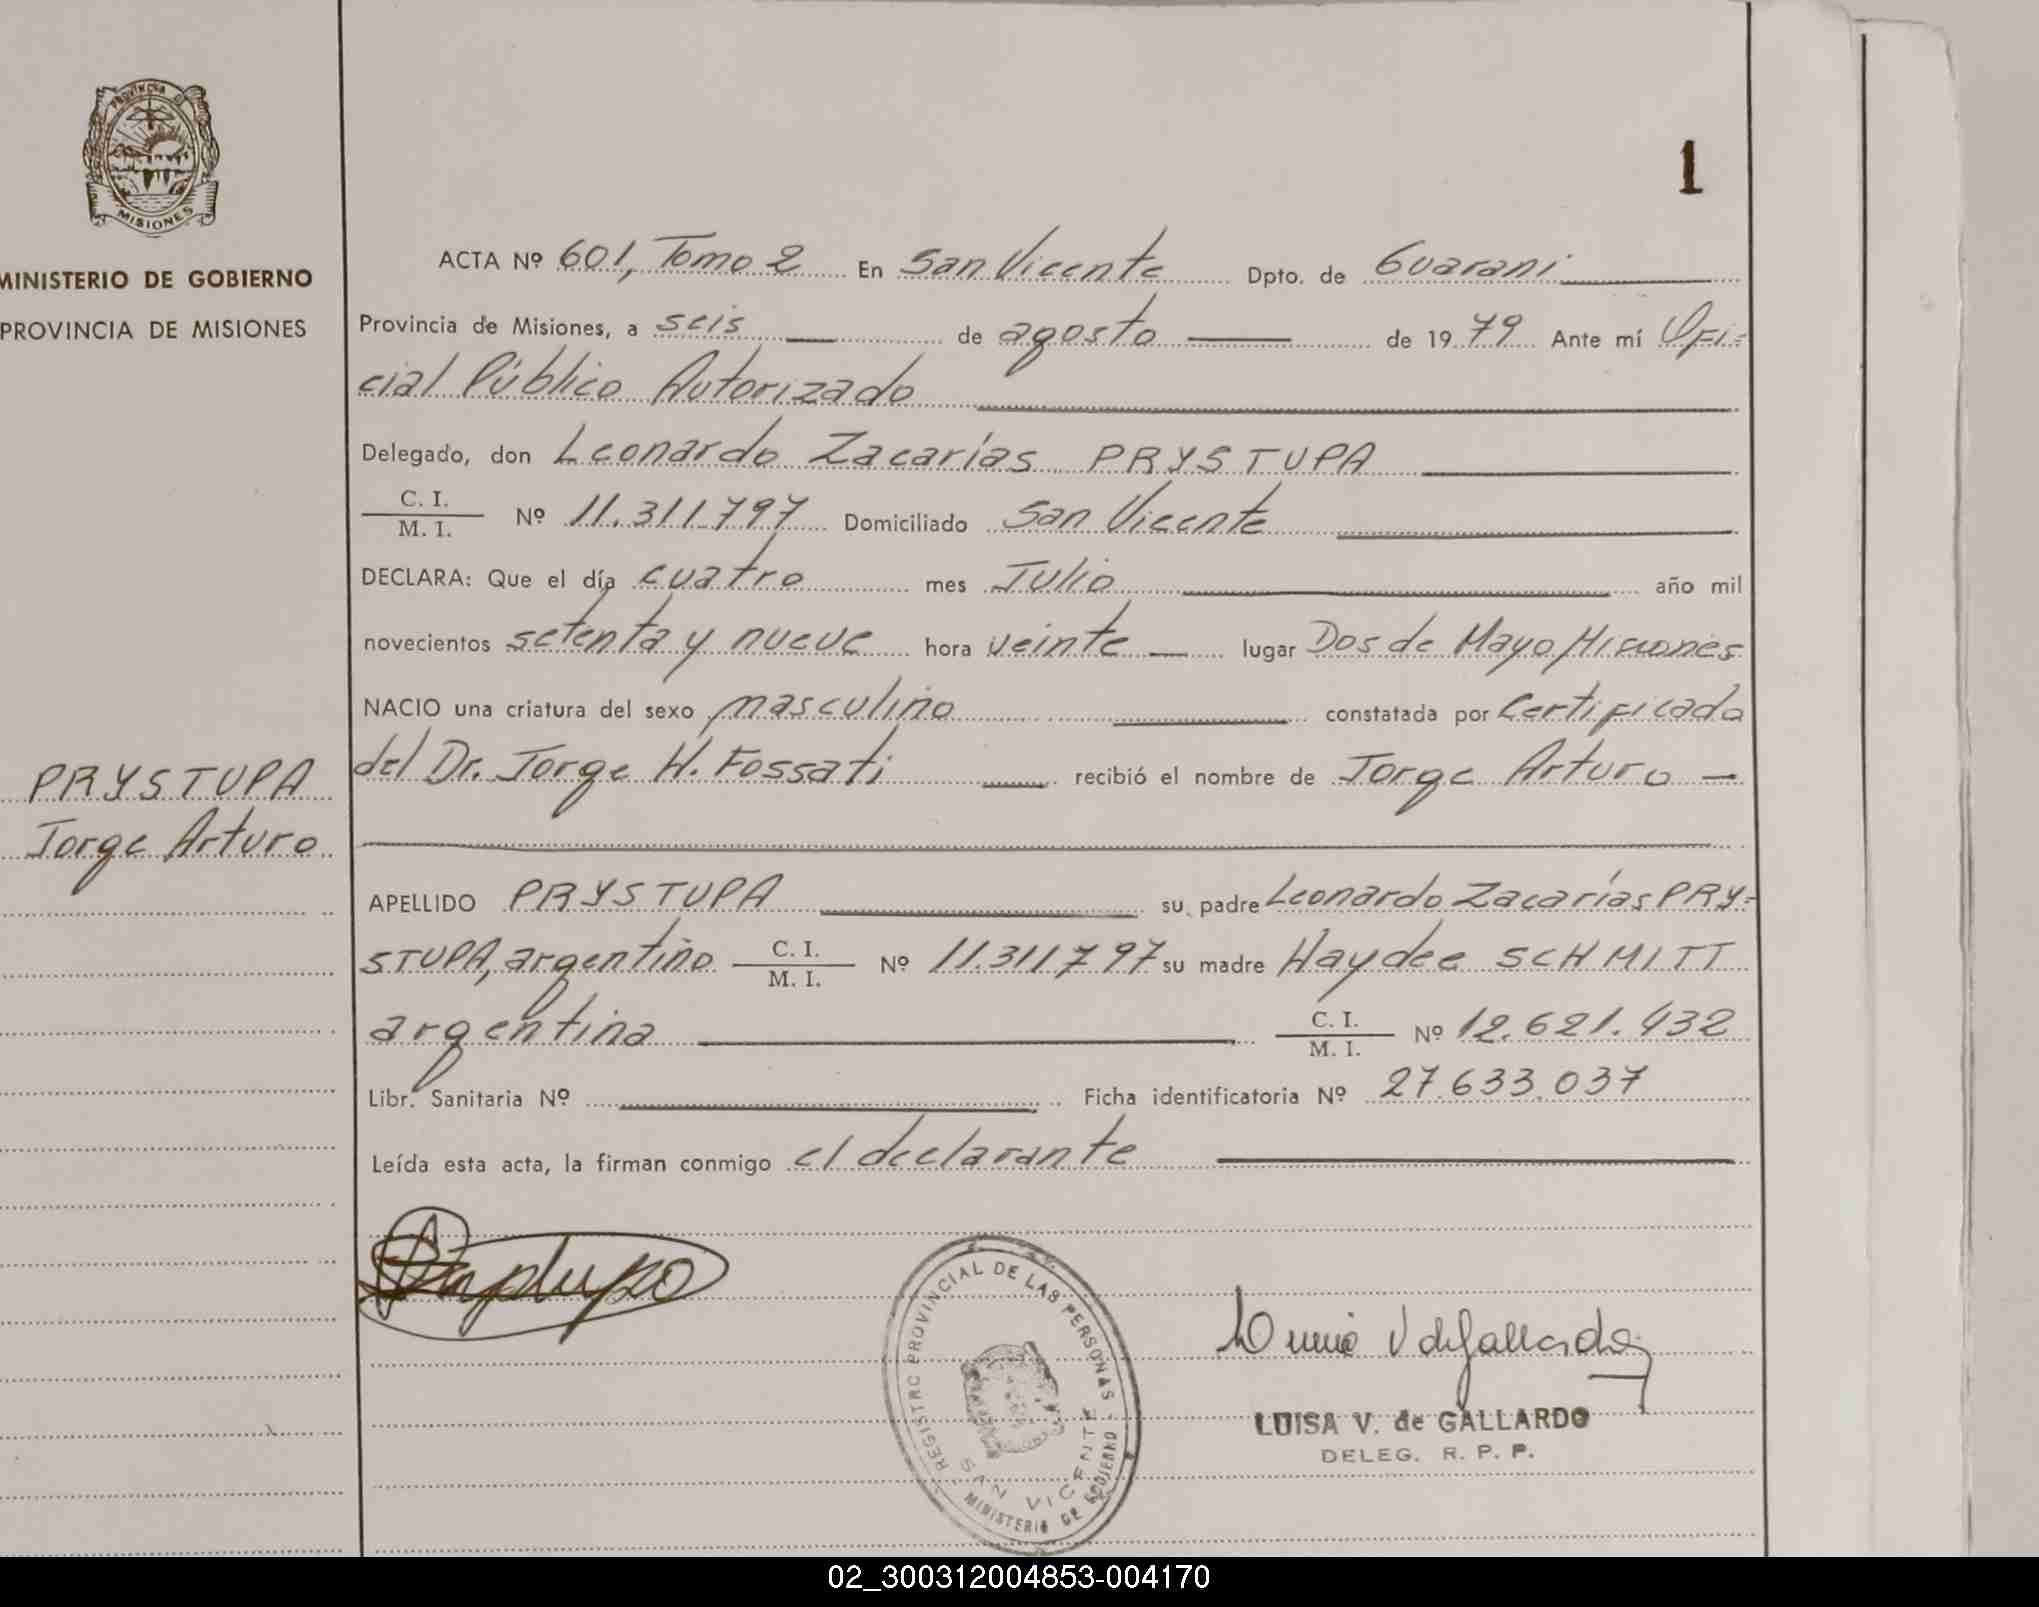 PROVINCIA DE
MISIONES
MINISTERIO DE GOBIERNO
PROVINCIA DE MISIONES
PRYSTUPA
Jorge Arturo
1
ACTA Nº 601, Tomo 2 En San Vicente Dpto. de Guaraní
Provincia de Misiones, a seis de agosto de 1979 Ante mí Ofi=
cial Público Autorizado
Delegado, don Leonardo Zacarías PRYSTUPA
C. I.
M. I. Nº 11.311.797 Domiciliado San Vicente
DECLARA: Que el día cuatro mes Julio año mil
novecientos setenta y nueve hora veinte lugar Dos de Mayo, Misiones
NACIO una criatura del sexo masculino constatada por Certificado
del Dr. Jorge H. Fossati recibió el nombre de Jorge Arturo
APELLIDO PRYSTUPA su padre Leonardo Zacarías PRY=
STUPA, argentino C. I. M. I. Nº 11.311.797 su madre Haydee SCHMITT
argentina C. I. M. I. Nº 12.621.432
Libr. Sanitaria Nº Ficha identificatoria Nº 27.633.037
Leída esta acta, la firman conmigo el declarante
REGISTRO PROVINCIAL DE LAS PERSONAS
SAN VICENTE
MINISTERIO DE GOBIERNO
LUISA V. de GALLARDO
DELEG. R. P. P.
02_300312004853-004170